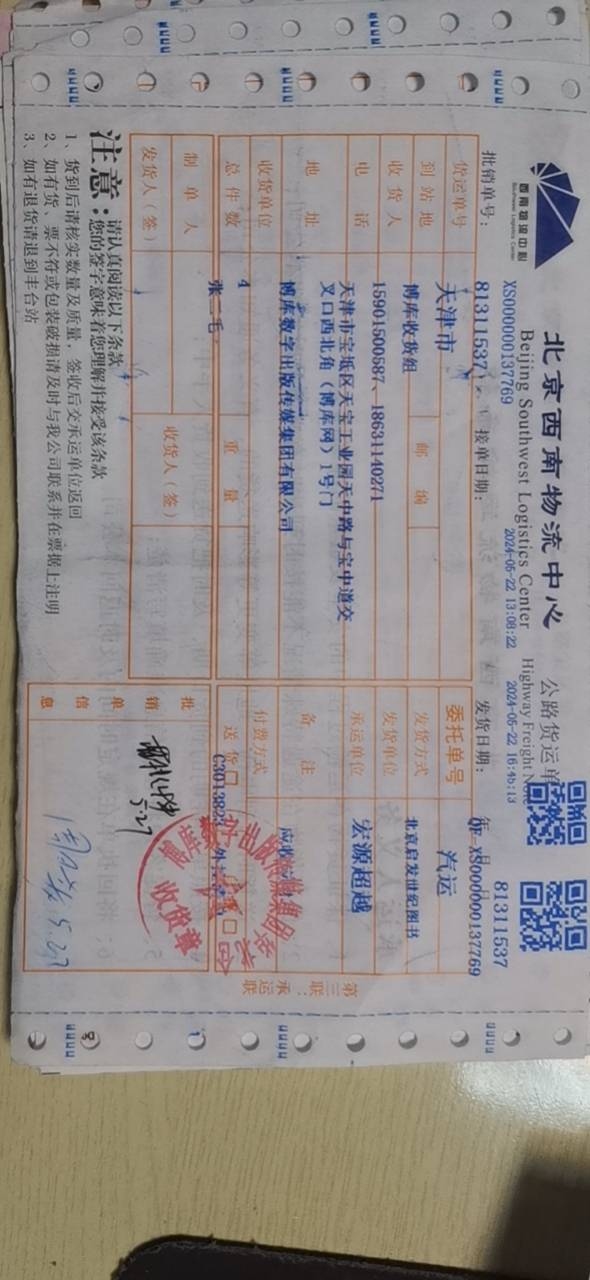 西南物流中心
Southwest Logistics Center
北京西南物流中心
公路货运单
Beijing Southwest Logistics Center
Highway Freight Note
XS000000137769
2024-05-22 13:08:22
2024-05-22 16:45:13
批销单号：
81311537
接单日期：
发货日期：
81311537
货运单号
委托单号
XS000000137769
到站地
天津市
邮编
发货方式
汽运
收货人
博库收货组
发货单位
北京启发世纪图书
电话
15901500687、18631140271
承运单位
宏源超越
地址
天津市宝坻区天宝工业园天中路与宝中道交
叉口西北角（博库网）1号门
备注
收货单位
博库数字出版传媒集团有限公司
付费方式
应收
总件数
4
重量
送货
制单人
张二毛
收货人（签）
发货人（签）
批销单信息
5.27
周 5.27
收货章
注意：
请认真阅读以下条款
您的签字意味着您理解并接受该条款
1、货到后请核实数量及质量，签收后交承运单位返回
2、如有货、票不符或包装破损请及时与我公司联系并在票据上注明
3、如有退货请退到丰台站
第三联：承运联